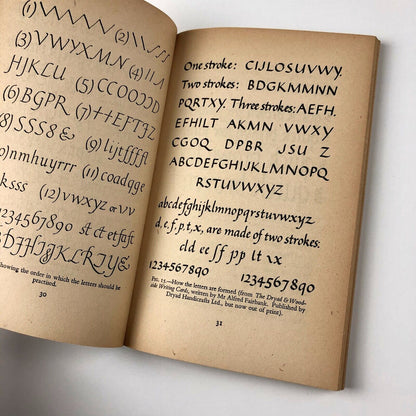 (1)\\\\\ (2)\\\\SSS
VWYXMN (4)IILA
HJKLU
(6)BGPR (7)HEFTZ
(8)SSS8& (9)lijtffff
(10)nmhuyrrr (11)coadqge
ksss (12)vwxyz or vv
1234567890 ct st &
showing the order in which the letters should be
practised.
30
One stroke: CIJLOSUVWY.
Two strokes: BDGKMMNN
PQRTXY. Three strokes: AEFH.
EFHILT AKMN VWXY
CGOQ DPBR JSU Z
ABCDEFGHIJKLMNOPQ
RSTUVWXYZ
abcdefghijklmnopqrstuvwxyz
d, e, f, p, t, x, are made of two strokes:
dd ee ff pp tt xx
1234567890 1234567890
FIG. 15.—How the letters are formed (from The Dryad & Wood-
side Writing Cards, written by Mr Alfred Fairbank. Published by
Dryad Handicrafts Ltd., but now out of print).
31